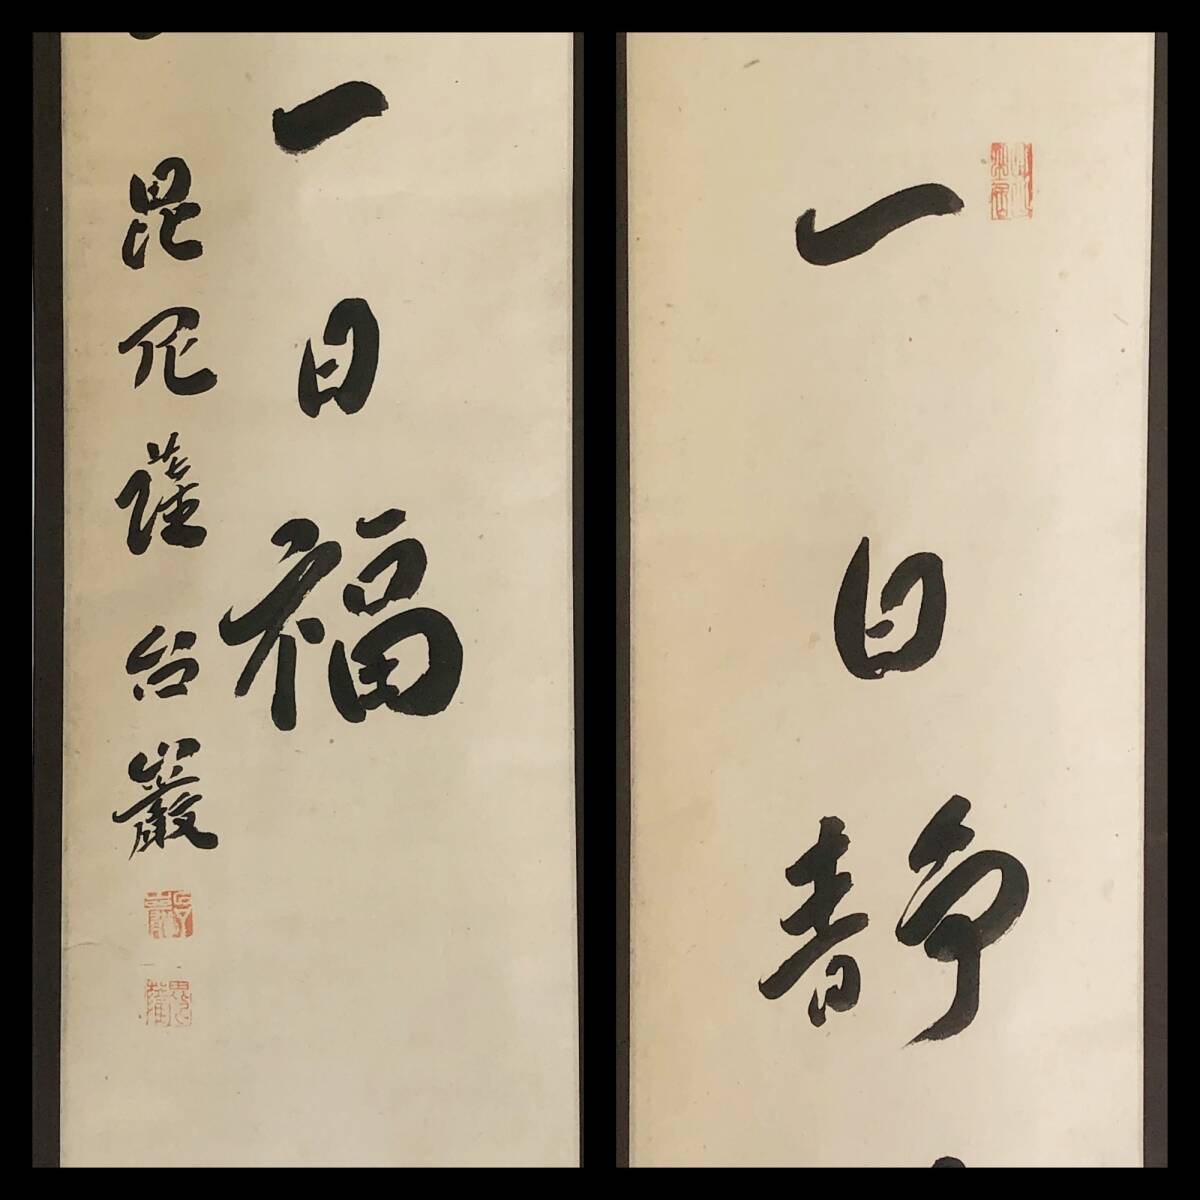 一日静
一日福
毘尼薩台巖